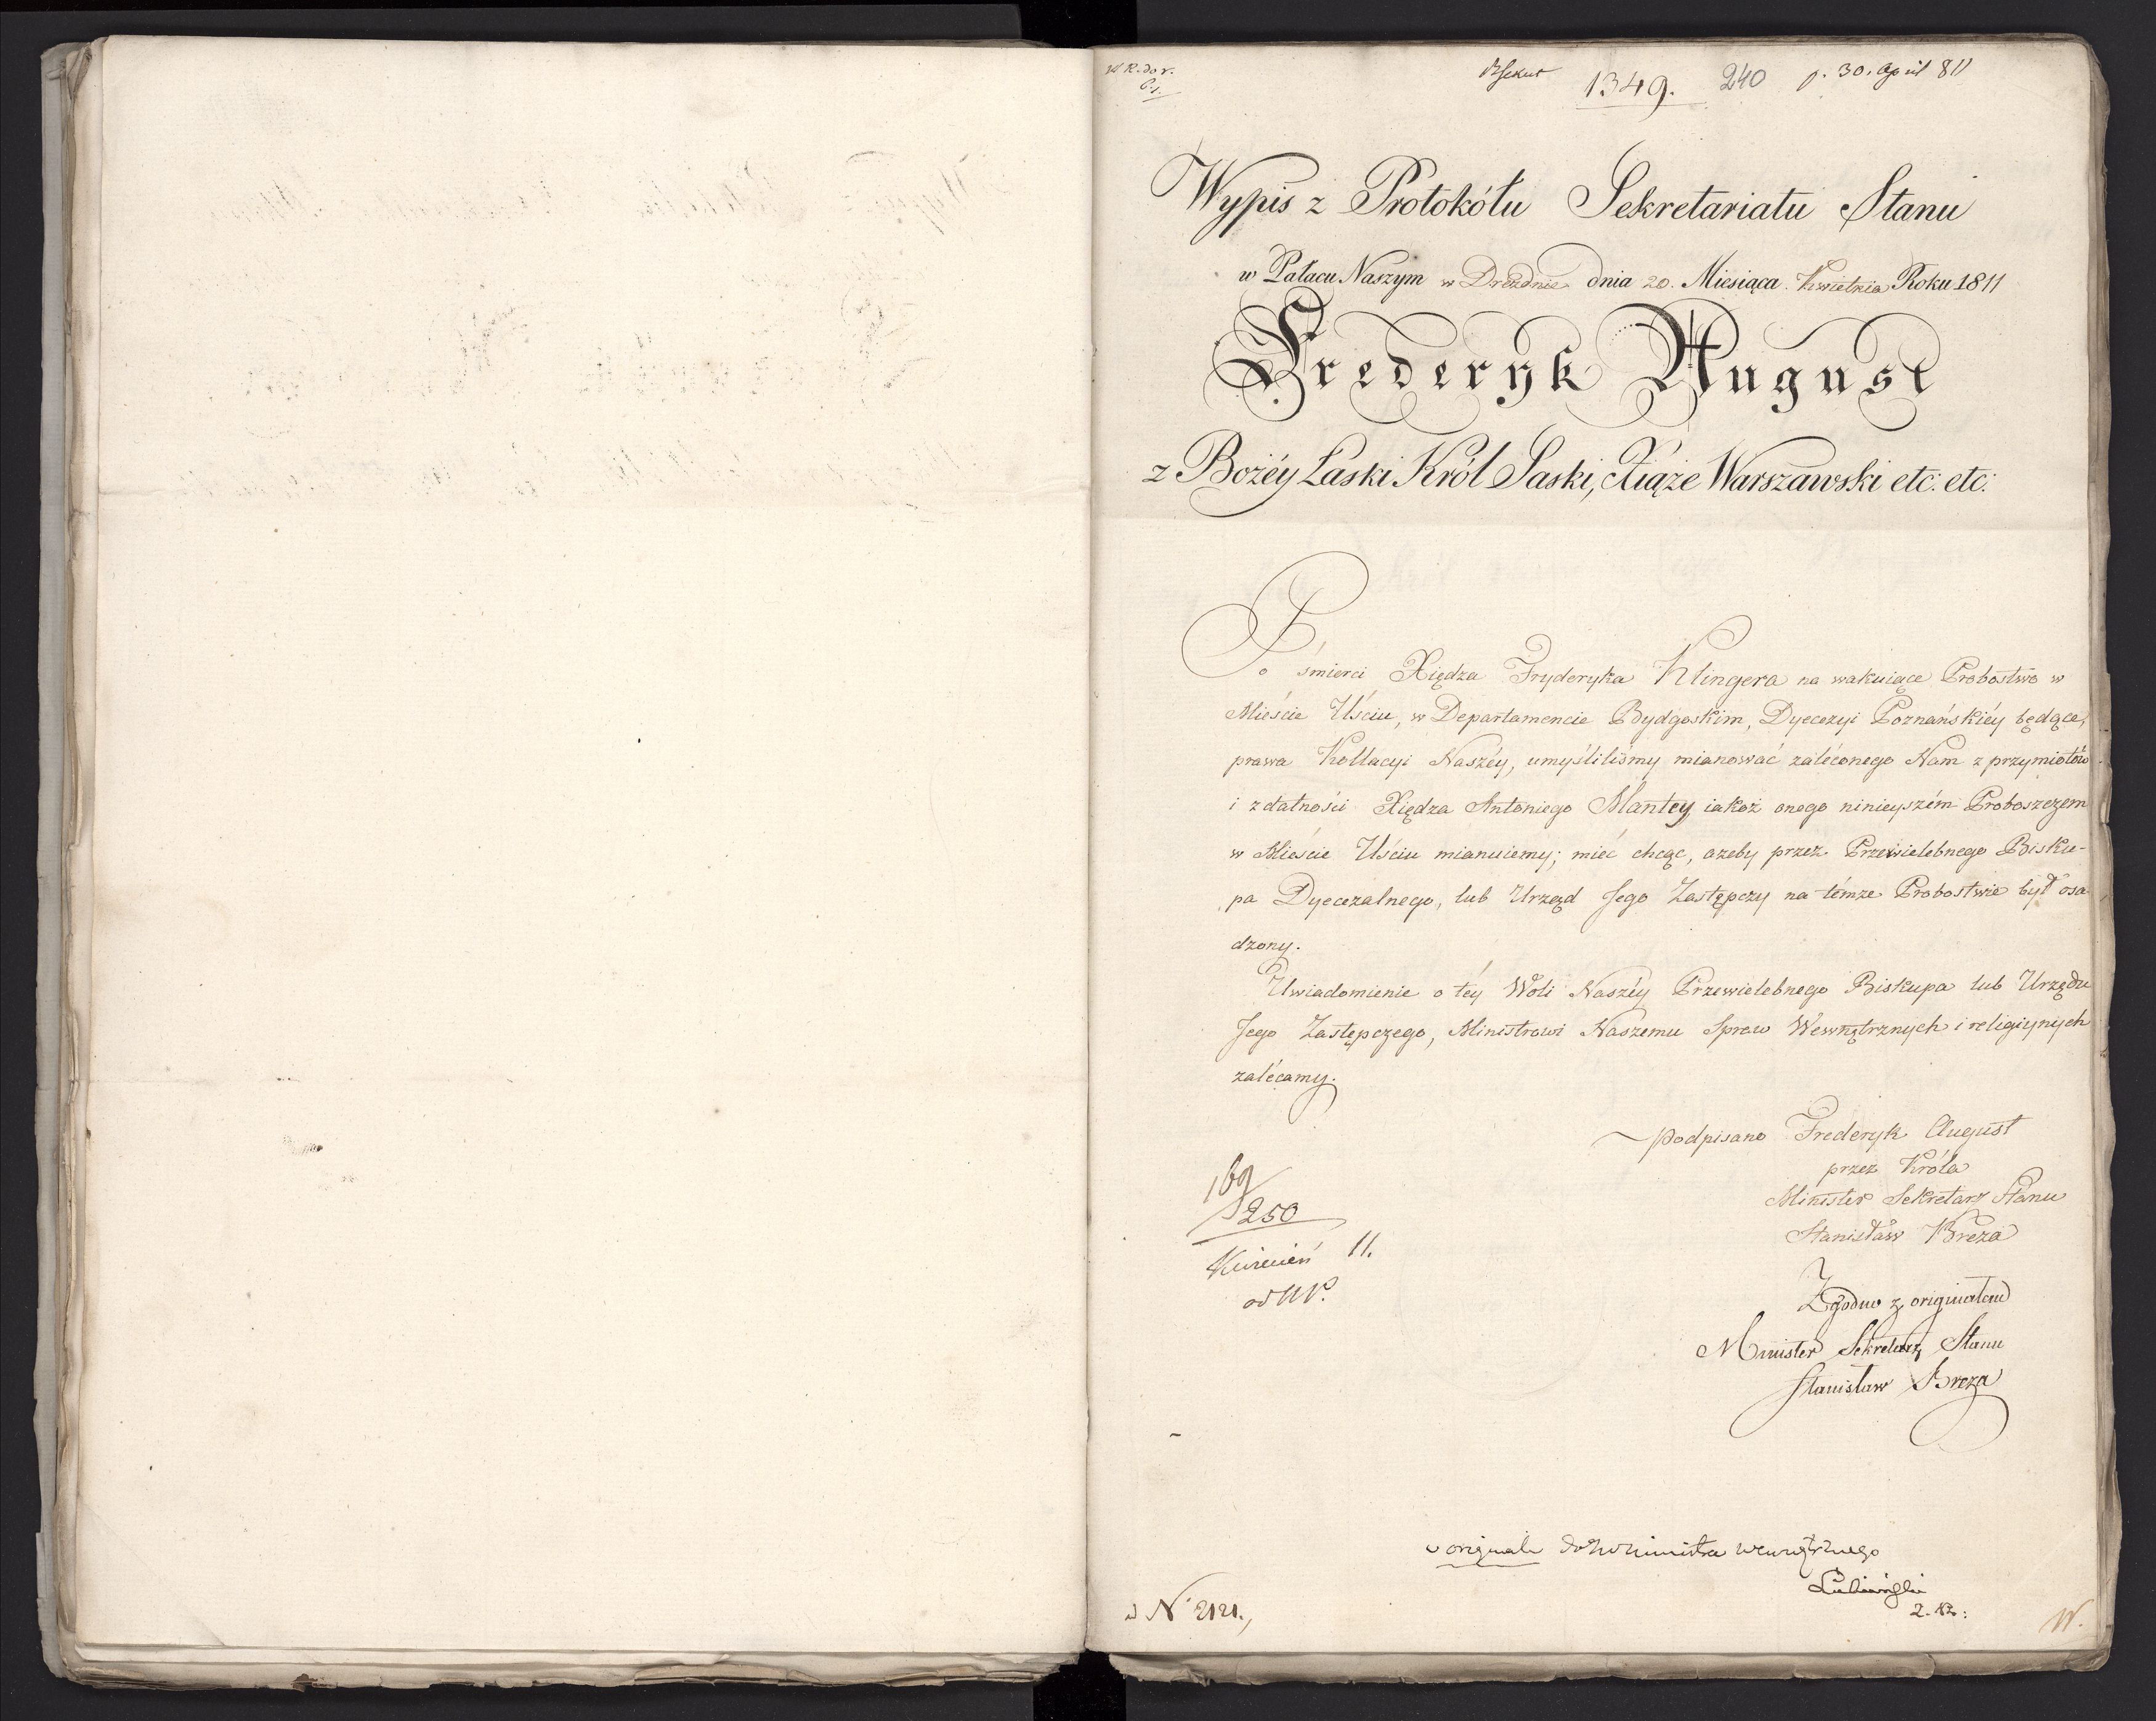 1349. 240 p. 30. April 811
Wypis z Protokółu Sekretariatu Stanu
w Pałacu Naszym w Dreźdnie dnia 20. Miesiąca Kwietnia Roku 1811
Frederyk August
z Bożéy Łaski Król Saski, Xiąże Warszawski etc: etc:
Po śmierci Xiędza Fryderyka Klingera na wakuiące Probostwo w
Mieście Uściu, w Departamencie Bydgoskim, Dyecezyi Poznańskiéy będące,
prawa Kollacyi Naszéy, umyśliliśmy mianować zaléconego Nam z przymiotów
i zdatności Xiędza Antoniego Mantey, iakoż onego ninieyszém Proboszczem
w Mieście Uściu mianuiemy; mieć chcąc, ażeby przez Przewielebnego Bisku-
pa Dyecezalnego, lub Urząd Jego Zastępczy na témże Probostwie był osa-
dzony.
Uwiadomienie o téy Woli Naszéy Przewielebnego Biskupa lub Urzędu
Jego Zastępczego, Ministrowi Naszemu Spraw Wewnętrznych i religiynych
zalécamy.
podpisano Frederyk August
przez Króla
Minister Sekretarz Stanu
Stanisław Breza
169
250
Kwiecień 11.
Zgodno z originałem
Minister Sekretarz Stanu
Stanisław Breza
originale
N 2121.
W.